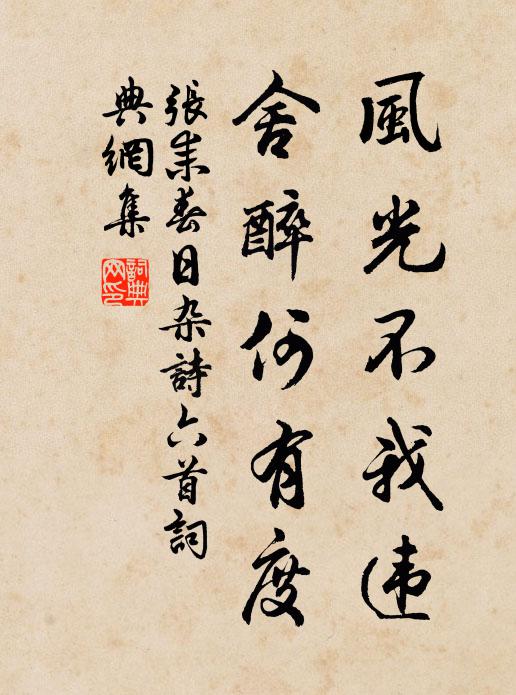 風光不我违
舍醉何有度
張耒春日杂詩六首詞
典網集
詞典
网印